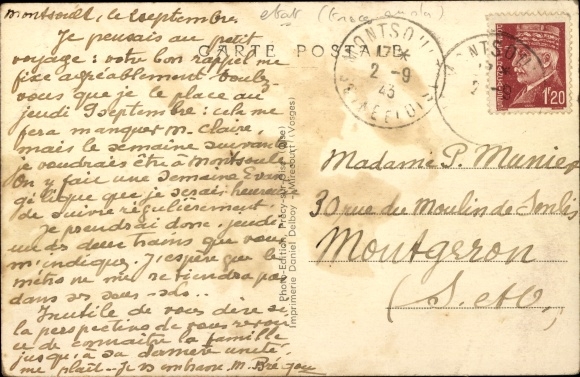 Montsoult, le 2 septembre
etat (trace anota)
CARTE POSTALE
MONTSOULT
17 *
2 - 9
43
SEINE ET OISE
MONTSOULT
1F20
Je pensais au petit
voyage: votre bon rappel me
fixe agréablement. Voulez-
vous que je le place au
jeudi 9 septembre: cela me
fera manquer M. Claire,
mais la semaine suivante
je voudrais être à Montsoult.
On y fait une semaine Évan-
gélique que je serais heureuse
de suivre régulièrement.
Je prendrai donc, jeudi
un des deux trams que vous
m'indiquez. J'espère que le
métro ne me retiendra pas
dans ses sous-sols..
Inutile de vous dire si
la perspective de vous revoir
et de connaître la famille
jusqu'à sa dernière unité
me plaît - Je vs embrasse M. Brégou
Photo-Edition Précy-sur-Oise (Oise)
Imprimerie Daniel Delboy - Mirecourt (Vosges)
Madame P. Munier
30 rue du Moulin de Senlis
Montgeron
(S. et O.)